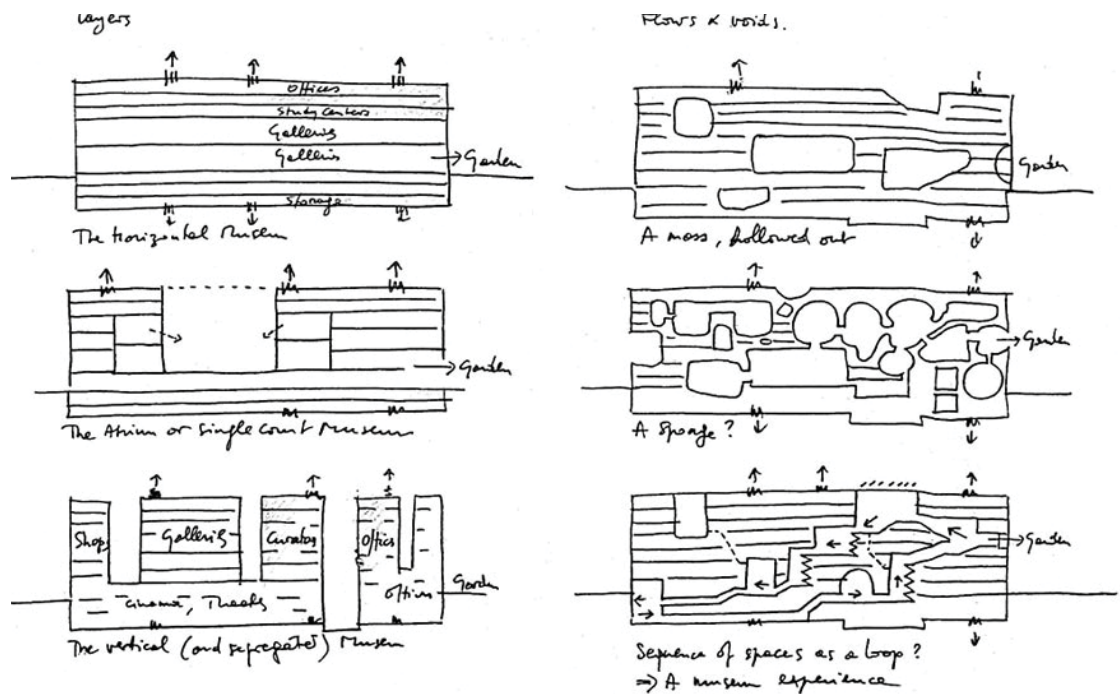 Layers
offices
study centers
Galleries
Galleries
→ Garden
storage
The Horizontal Museum
→ Garden
The Atrium or single court Museum
Shops
Galleries
Curators
offices
cinema, Theatre
offices
Garden
The vertical (and segregated) Museum
Flows & voids.
Garden
A mass, hollowed out
→ Garden
A sponge?
→ Garden
Sequence of spaces as a loop?
⇒ A museum experience